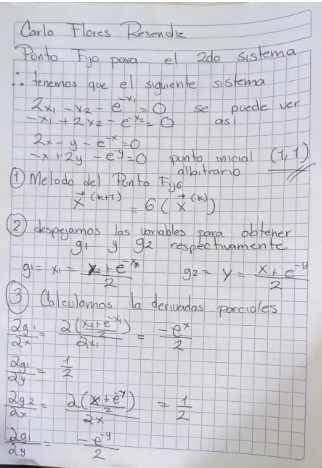 Carlo Flores Resendiz
Punto Fijo para el 2do sistema
∴ tenemos que el siguiente sistema
2x₁ - x₂ - e^-x₁ = 0 se puede ver
-x₁ + 2x₂ - e^-x₂ = 0 así
2x - y - e^-x = 0
-x + 2y - e^-y = 0 punto inicial (1,1)
albitrario
① Metodo del Punto Fijo
x⃗^(k+1) = G(x⃗^(k))
② despejamos las variables para obtener
g1 y g2 respectivamente.
g1 = x₁ = (x₂ + e^-x₁)/2 g2 = y = (x + e^-y)/2
③ Calculamos la derivadas parciales.
∂g1/∂x = ∂((x₂+e^-x₁)/2)/∂x₁ = -e^x/2
∂g1/∂y = 1/2
∂g2/∂x = ∂((x+e^y)/2)/∂x = 1/2
∂g1/∂y = -e^-y/2